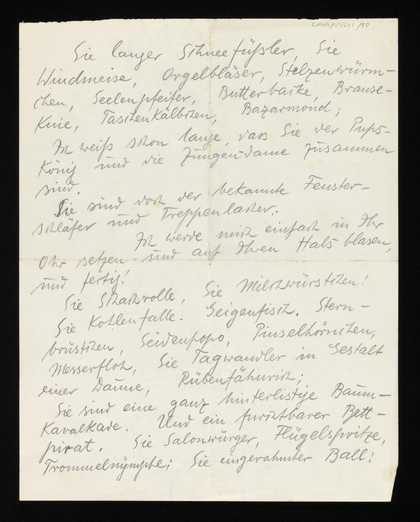 Sie langer Schneefüßler, Sie
Windmeise, Orgelbläser, Stelzenwürm-
chen, Seelenpfeifer, Butterbacke, Brause-
Knie, Taschenkälbchen, Bazarmond;
Ich weiß schon lange, dass Sie der Pups-
König und die Zungendame zusammen
sind.
Sie sind doch der bekannte Fenster-
schläfer und Treppenlacher.
Ich werde mich einfach in Ihr
Ohr setzen und auf Ihren Hals blasen,
und fertig!
Sie Schachrolle, Sie Milchwürstchen!
Sie Kohlenfalle. Geigenfisch. Stern-
brüstchen, Seidenpopo, Pinselhörnchen,
Messerfloh, Sie Tagwandler in Gestalt
einer Daune, Rübenfähnrich;
Sie sind eine ganz hinterlistige Baum-
Kavalkade. Und ein furchtbarer Bett-
pirat. Sie Salonwürger, Flügelspritze,
Trommelnymphe; Sie eingerahmter Ball!